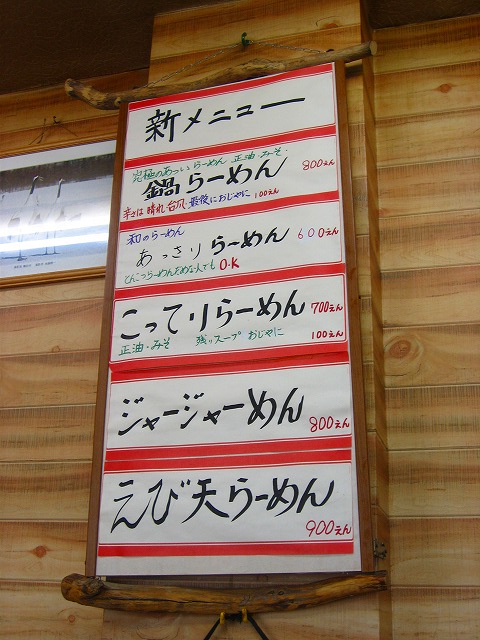 新メニュー
究極のあつい らーめん 正油・みそ・
鍋らーめん 800えん
辛さは 晴れ・台風・最後におじゃに 100えん
和のらーめん
あっさりらーめん 600えん
とんこつらーめんだめな人でも O.K
こってりらーめん 700えん
正油・みそ 残りスープ おじゃに 100えん
ジャージャーめん 800えん
えび天らーめん 900えん